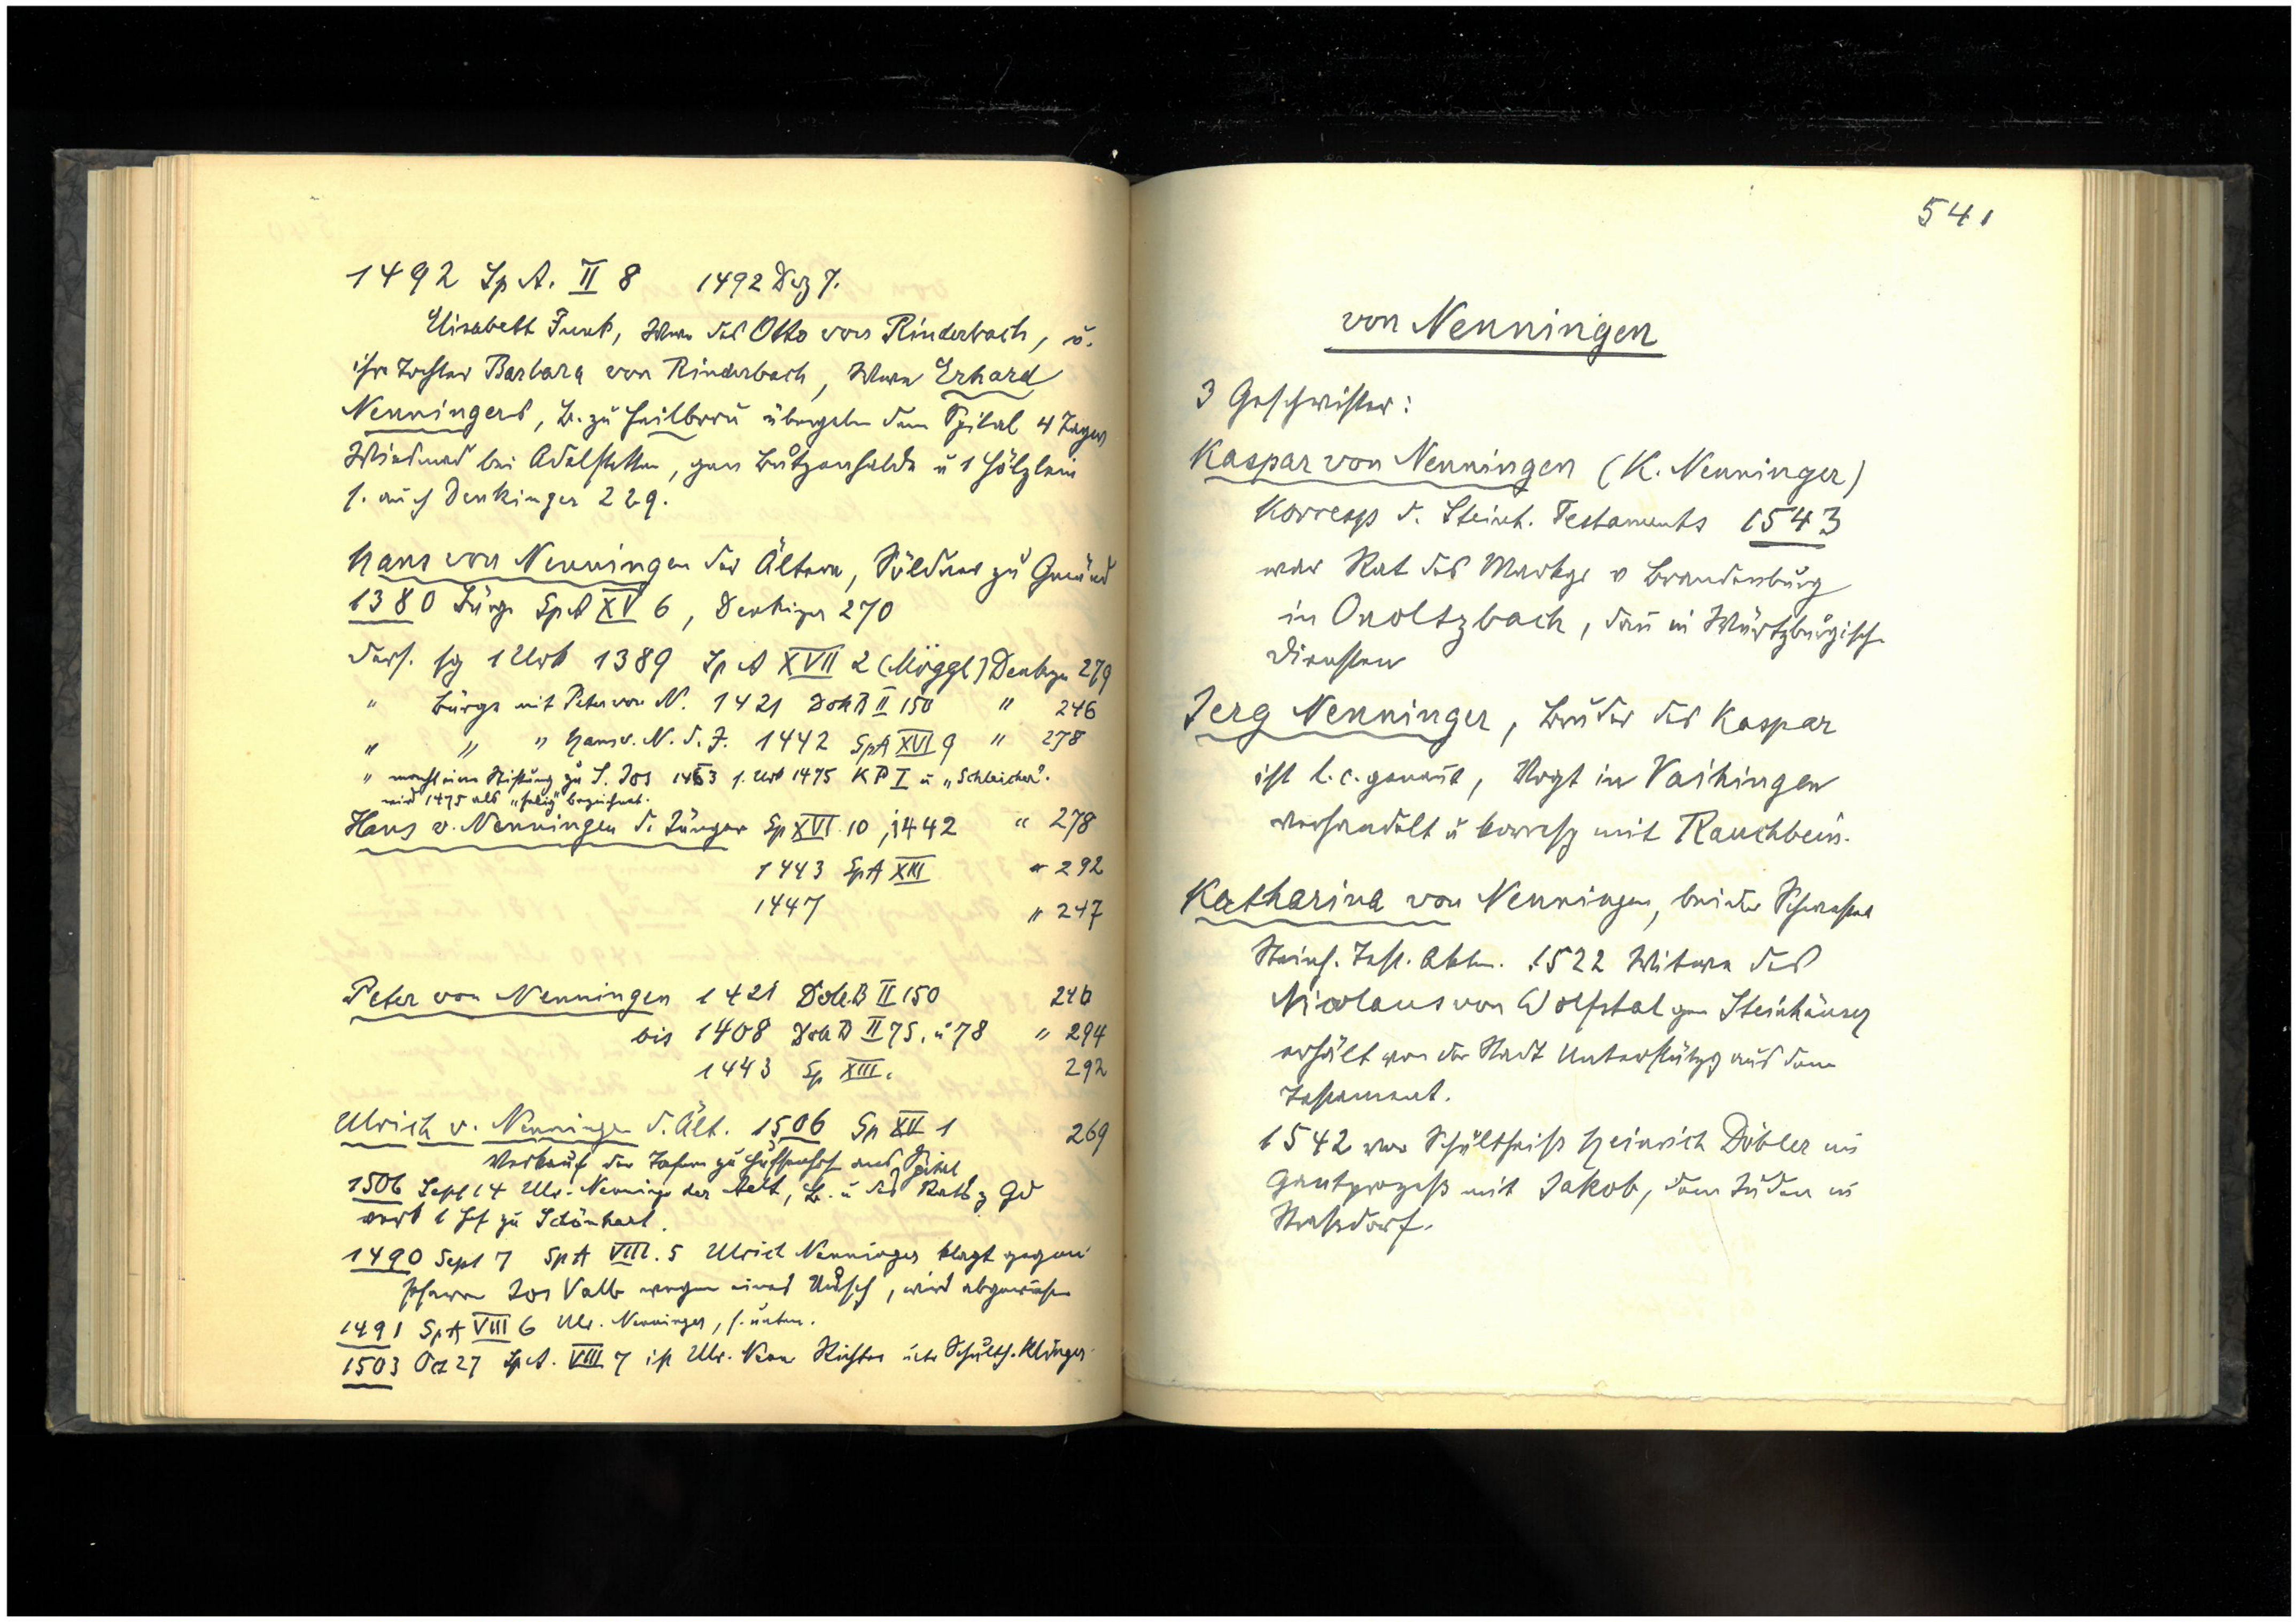 1492 Sp A. II 8 1492 Dez 7.
Elisabeth Funk, Wwe des Otto von Rinderbach, u.
ihre Tochter Barbara von Rinderbach, Wwe Erhard
Nenningers, B. zu Heilbronn übergeben dem Spital 4 Tagw
Wiesmad bei Adelstetten, gen Butzenhalde u 1 Hölzlein
s. auch Denkinger 229.
Hans von Nenningen der Ältere, Söldner zu Gmünd
1380 Bürge SpA XV 6, Denkiger 270
ders. sg 1 Urk 1389 Sp A XVII 2 (Möggl) Denkgr 279
" Bürge mit Peter von N. 1421 DokB II 150 " 246
" " " Hans v. N. d. J. 1442 SpA XVI 9 " 278
" macht eine Stiftung zu S. Jos 1463 s. Urk 1475 KP I u „Schleicher".
wird 1475 als „selig" bezeichnet.
Hans v. Nenningen d. Jünger Sp XVI 10, 1442 " 278
1443 SpA XIII " 292
1447 " 247
Peter von Nenningen 1421 DokB II 150 246
bis 1408 DokB II 75, u 78 " 294
1443 Sp XIII. 292
Ulrich v. Nenningen d. Ält. 1506 Sp XV 1 269
Verkauf der Tafern zu Hussenhof ans Spital
1506 Sept 14 Ulr. Nenninger der Aelt, B. u des Rats z Gd
verk 1 Hof zu Schönhart.
1490 Sept 7 SpA VIII. 5 Ulrich Nenninger klagt gegen
Pfarrer Jos Valb wegen eines , wird abgewiesen
1491 SpA VIII 6 Ulr. Nenninger, s. unten.
1503 Oct 27 Sp A. VIII 7 ist Ulr. Nenn Richter unter Schulth. Klinger
541
von Nenningen
3 Geschwister:
Kaspar von Nenningen (K. Nenninger)
Korresp d. Steinh. Testaments 1543
war Rat des Markgr v Brandenburg
in Onoltzbach, dan in Würtzburgisch
Diensten
Jerg Nenninger, Bruder des Kaspar
ist l. c. genant, Vogt in Vaihingen
verhandelt u korresp mit Rauchbein.
Katharina von Nenningen, beider Schwester
Steinh. Test. Akten. 1522 Witwe des
Nicolaus von Wolfstal gen Steinhäuser
erhält von der Stadt Unterstützg aus dem
Testament.
1542 war Schultheiß Heinrich Döbler im
Gantprozeß mit Jakob, dem Juden in
Straßdorf.